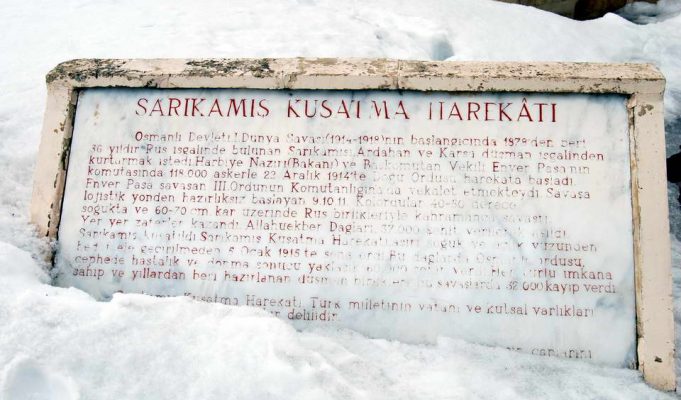 SARIKAMIŞ KUŞATMA HAREKÂTI
Osmanlı Devleti I.Dünya Savaşı(1914-1918)nın başlangıcında 1878'den beri
36 yıldır Rus işgalinde bulunan Sarıkamış Ardahan ve Karsı düşman işgalinden
kurtarmak istedi.Harbiye Nazırı(Bakanı) ve Başkomutan Vekili Enver Paşa'nın
komutasında 118.000 askerle 22 Aralık 1914'te Doğu Ordusu harekata başladı.
Enver Paşa savaşan III.Ordunun Komutanlığına vekalet etmekteydi. Savaşa
lojistik yönden hazırlıksız başlayan 9.10.11. Kolordular 40-50 derece
soğukta ve 60-70 cm kar üzerinde Rus birlikleriyle kahramanca savaştı.
Yer yer zaferler kazandı. Allahuekber Dağları 37.000 şehit verilerek aşıldı.
Sarıkamış kuşatıldı. Sarıkamış Kuşatma Harekatı aşırı soğuk ve açlık yüzünden
geçirilmeden 5 Ocak 1915'te sona erdi. Bu dağlarda Osmanlı ordusu,
cephede hastalık ve donma sonucu şehit verdi. Her türlü imkana
sahip ve yıllardan beri hazırlanan düşman bu savaşlarda 32.000 kayıp verdi.
Kuşatma Harekatı, Türk milletinin vatanı ve kutsal varlıkları
delilidir.